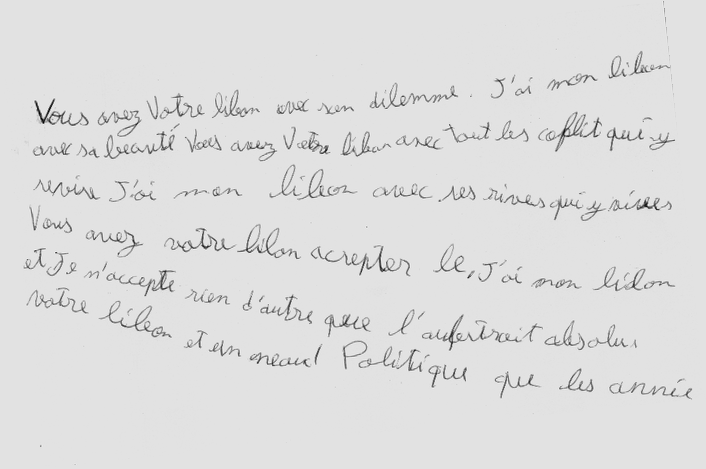 Vous avez Votre liban avec son dilemme. J'ai mon liban
avec sa beauté Vous avez Votre liban avec tout les coflit qui y
revise J'ai mon liban avec ses rives qui y vivees
Vous avez votre liban acrepter le, J'ai mon lidon
et Je n'accepte rien d'autre que l' absolu
votre liban et un Politique que les année